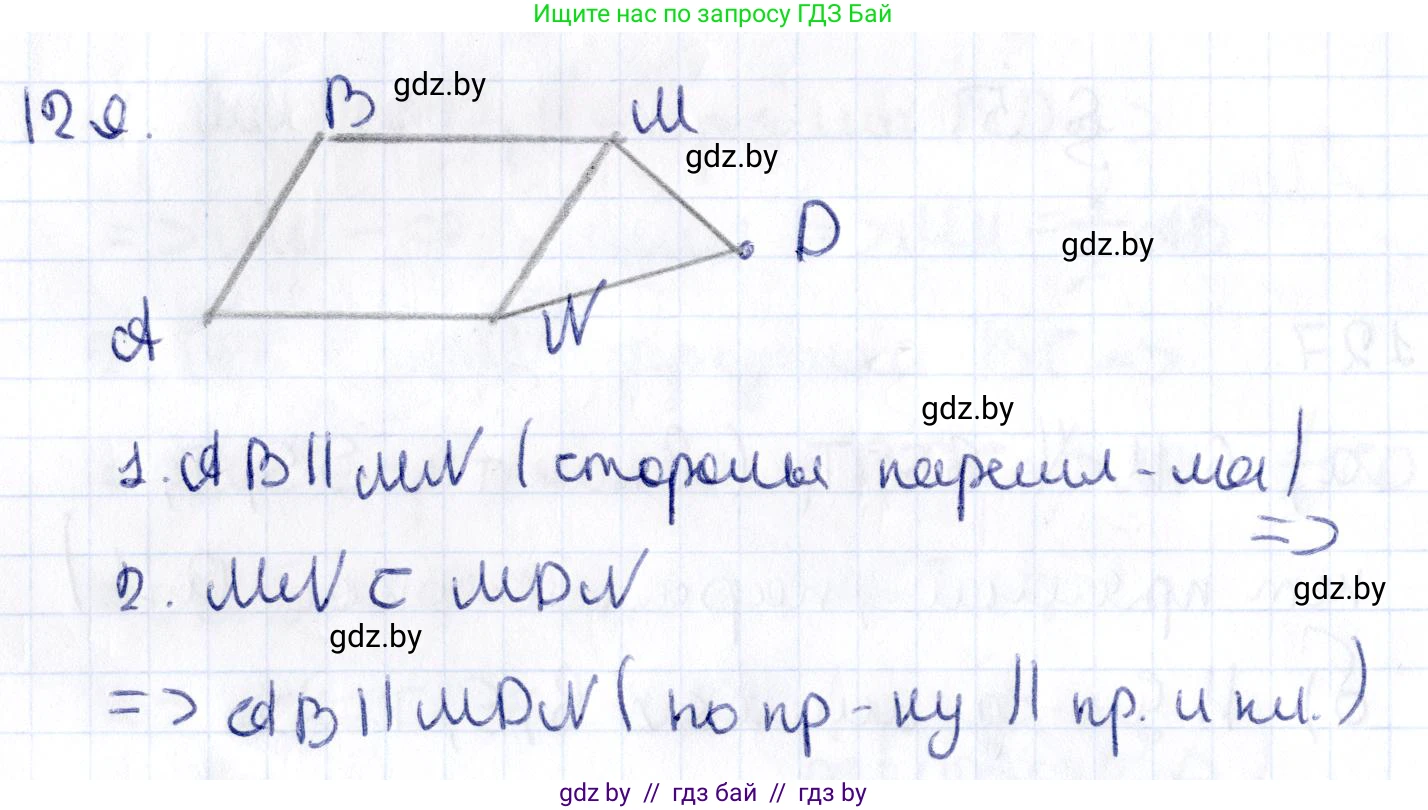 Ищите нас по запросу ГДЗ Бай
129.
B
gdz.by
M
gdz.by
D
gdz.by
A
N
gdz.by
1. AB || MN (стороны паралл-ма)
=>
2. MN ⊂ MDN
gdz.by
gdz.by
=> AB || MDN (по пр-ку || пр. и пл.)
gdz by // гдз бай // гдз by